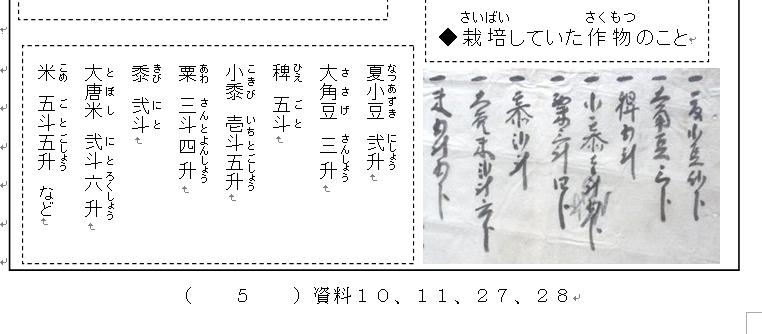 ◆栽培していた作物のこと
一夏小豆弐升
一大角豆三升
一稗五斗
一小黍壱斗五升
一粟三斗四升
一黍弐斗
一大唐米弐斗六升
一米五斗五升
夏小豆 弐升
大角豆 三升
稗 五斗
小黍 壱斗五升
粟 三斗四升
黍 弐斗
大唐米 弐斗六升
米 五斗五升 など
( 5 )資料10、11、27、28